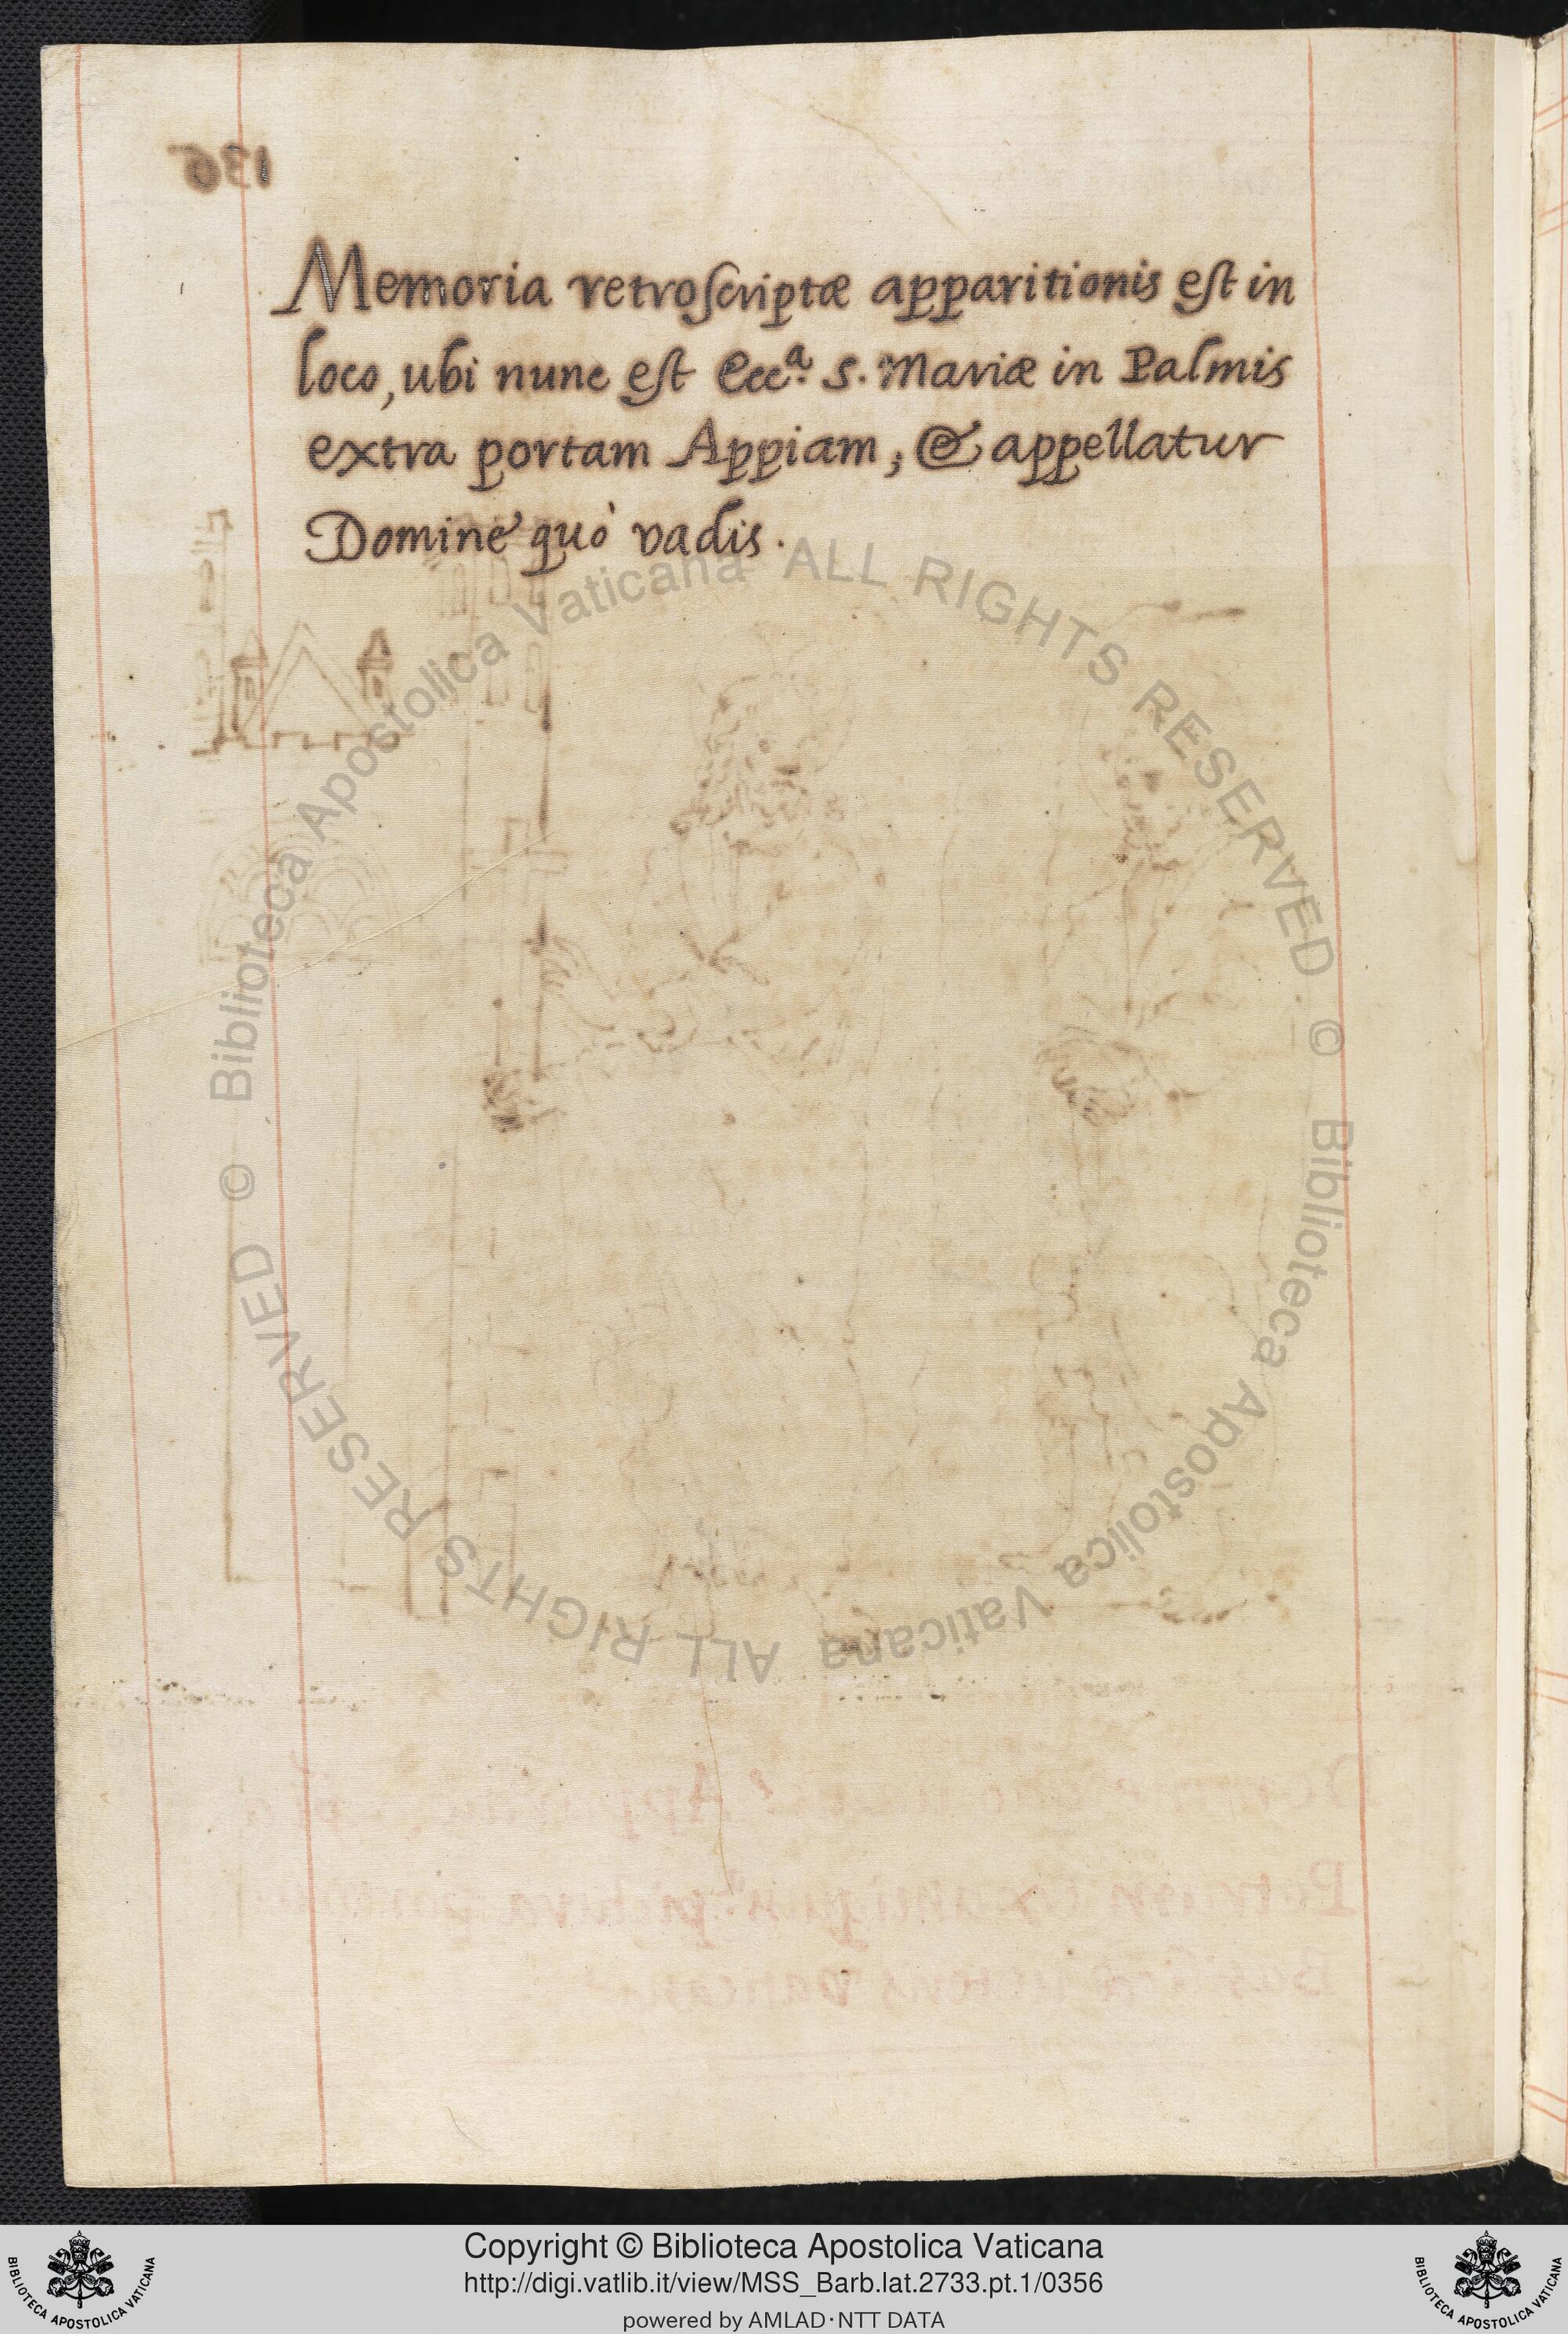 136
Memoria retroscriptæ apparitionis est in
loco, ubi nunc est Ecc.ª S. Mariæ in Palmis
extra portam Appiam, & appellatur
Domine quò vadis.
© Biblioteca Apostolica Vaticana ALL RIGHTS RESERVED © Biblioteca Apostolica Vaticana ALL RIGHTS RESERVED
Copyright © Biblioteca Apostolica Vaticana
http://digi.vatlib.it/view/MSS_Barb.lat.2733.pt.1/0356
powered by AMLAD·NTT DATA
BIBLIOTECA APOSTOLICA VATICANA
BIBLIOTECA APOSTOLICA VATICANA